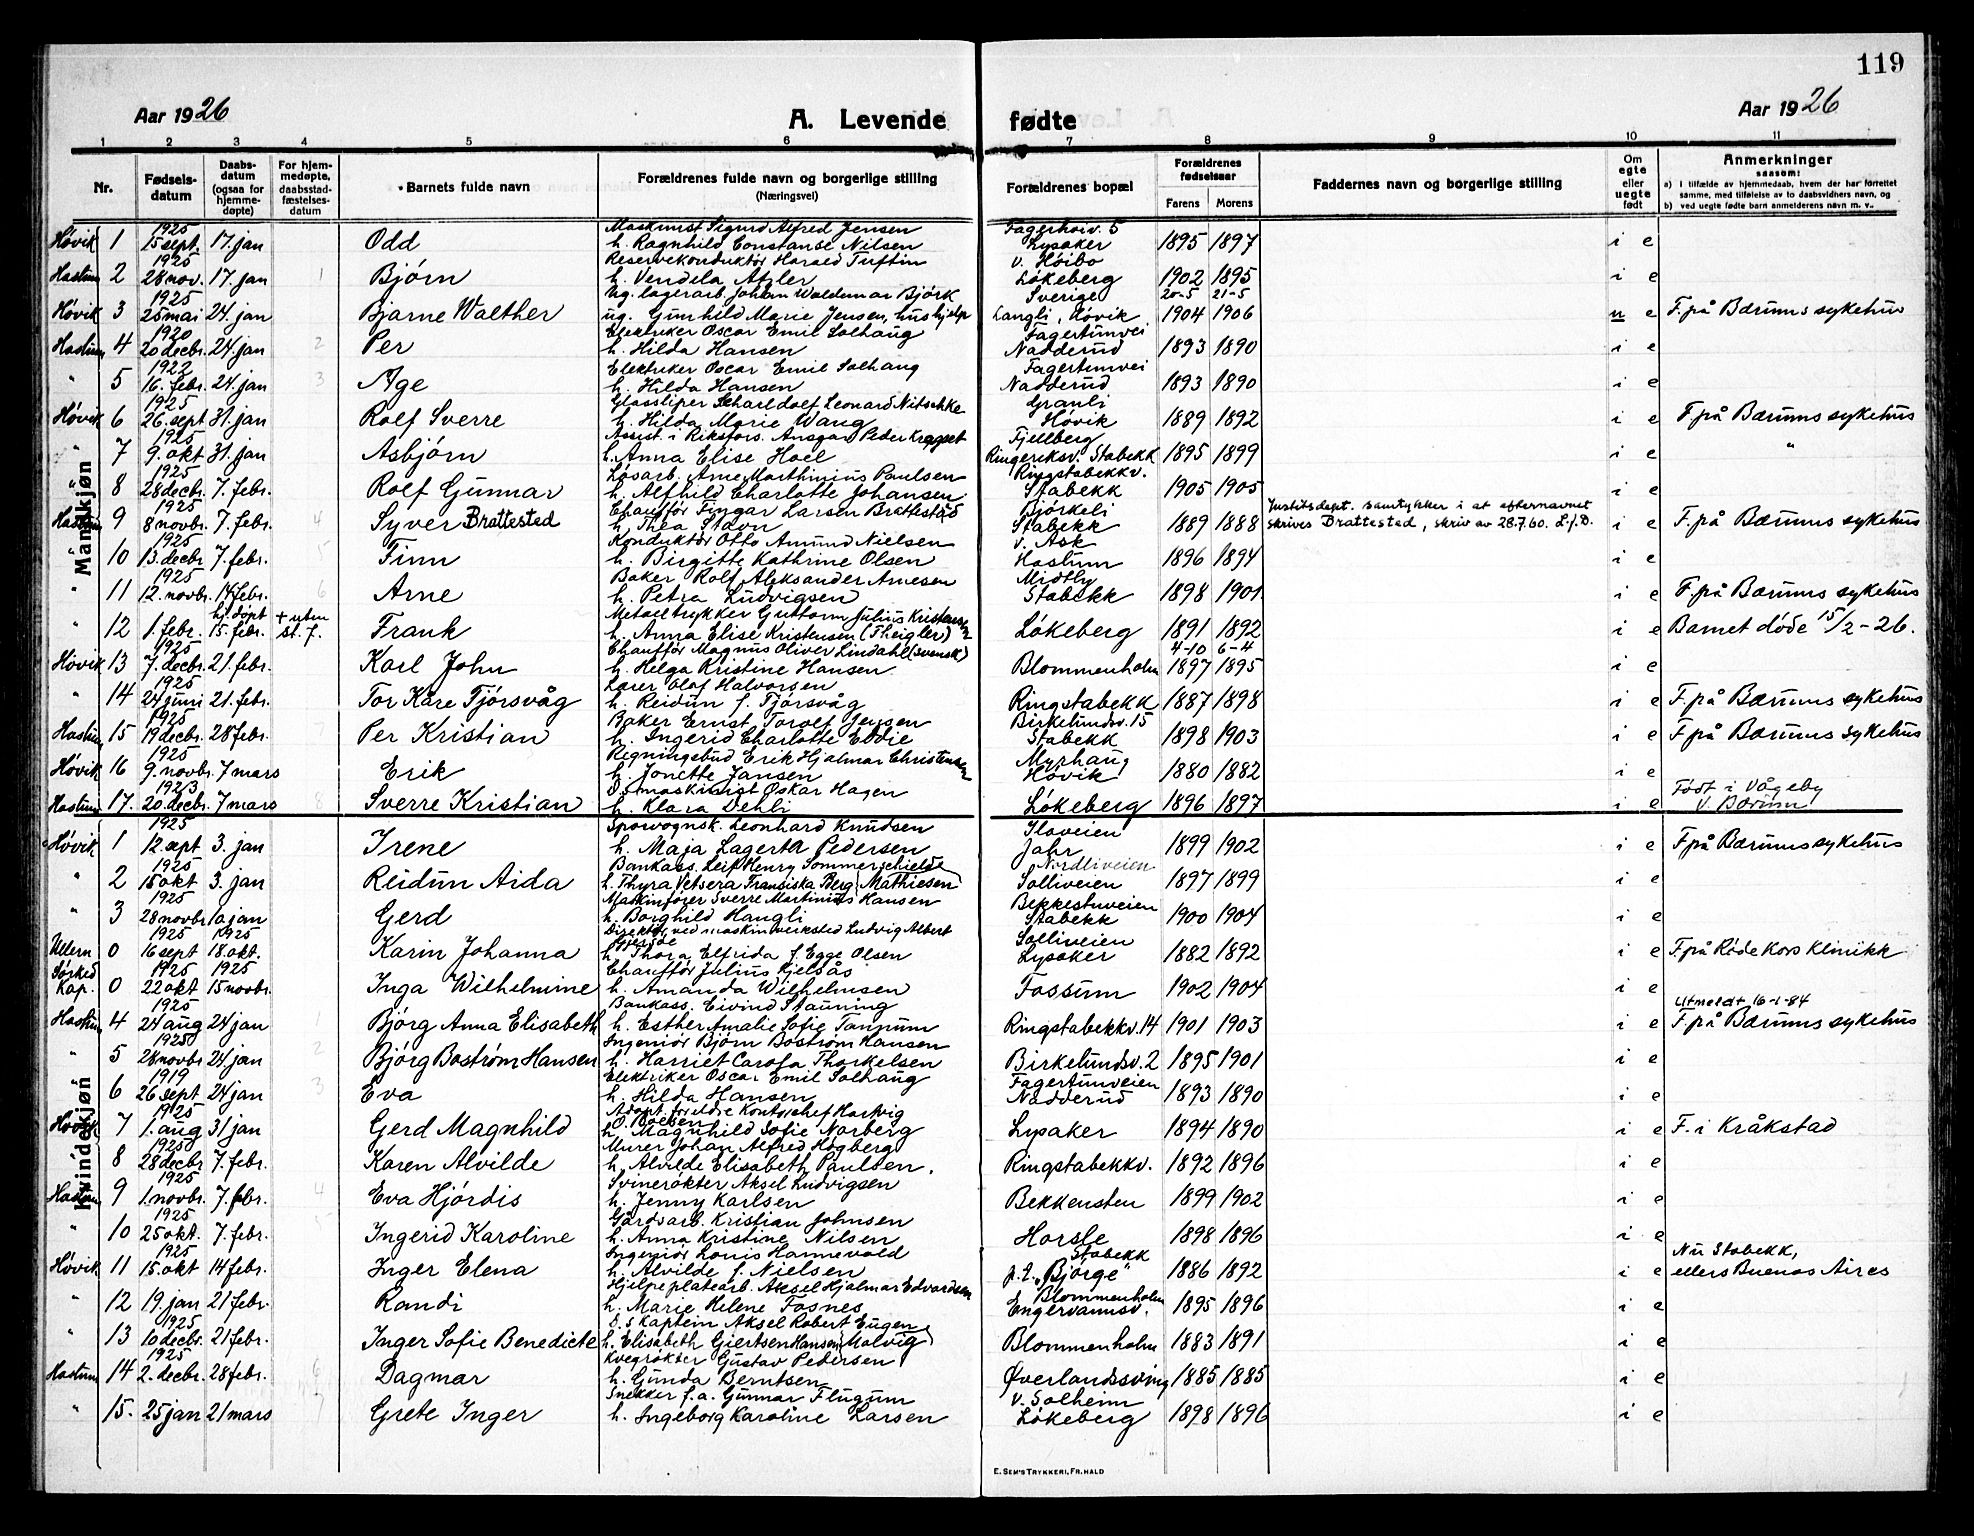 119
Aar 1926 A. Levende fødte Aar 1926
1 2 3 4 5 6 7 8 9 10 11
Nr. Fødsels-datum Daabs-datum (ogsaa for hjemme-døpte) For hjem-medøpte, daabsstad-fæstelses-datum Barnets fulde navn Forældrenes fulde navn og borgerlige stilling (Næringsvei) Forældrenes bopæl Forældrenes fødselsaar Farens Morens Faddernes navn og borgerlige stilling Om egte eller uegte født Anmerkninger saasom:
a) I tilfælde av hjemmedaab, hvem der har forrettet samme, med tilføielse av to daabsvidners navn, og
b) ved uegte fødte barn anmelderens navn m. v..
Mandkjøn
1925 Maskinist Sigurd Alfred Jensen Fagerhøiv. 5
Høvik 1 15 sept. 17. jan Odd h. Ragnhild Constanse Nilsen Lysaker 1895 1897 i e
1925 Reservekonduktør Harald Tuftin v. Høibo
Haslum 2 28 nov. 17. jan 1 Bjørn h. Vendela Atzler Løkeberg 1902 1895 i e
1925 Ug. lagerarb. Johan Waldemar Björk Sverige 20-5 21-5
Høvik 3 25 mai 24. jan Bjarne Walther ug. Gunhild Marie Jensen, hushjelp Langli, Høvik 1904 1906 u e F. på Bærums sykehus
1920 Elektriker Oscar Emil Solhaug Fagertunvei
Haslum 4 20 decbr. 24. jan 2 Per h. Hilda Hansen Nadderud 1893 1890 i e
1922 Elektriker Oscar Emil Solhaug Fagertunvei
" 5 16. febr. 24. jan 3 Age h. Hilda Hansen Nadderud 1893 1890 i e
1925 Glassliper Leonard Nitschke Granli
Høvik 6 26. sept 31. jan Rolf Sverre h. Hilda Marie Wang Høvik 1889 1892 i e F. på Bærums sykehus
1925 Assist. i Riksfors. Ansgar Peder Kragset Fjellberg
" 7 9. okt 31. jan Asbjørn h. Anna Elise Hoel Ringeriksv. Stabekk 1895 1899 i e "
1925 Løsarb. Arne Marthinius Paulsen Ringstabekkv.
" 8 28 decbr. 7. febr. Rolf Gunnar h. Alfhild Charlotte Johansen Stabekk 1905 1905 i e
1925 Chauffør Fingar Larsen Brattestad Bjørkeli Justitsdept. samtykker i at efternavnet
Haslum 9 8 novbr. 7. febr. 4 Syver Brattested h. Thea Stavn Stabekk 1889 1888 skrives Brattestad, skriv av 28.7.60. L.f.D. i e F. på Bærums sykehus
1925 Konduktør Otto Amund Nielsen v. Ask
" 10 13. decbr. 7. febr. 5 Finn h. Birgitte Kathrine Olsen Haslum 1896 1894 i e
1925 Baker Rolf Aleksander Arnesen Midtby
" 11 12. novbr. 14 febr. 6 Arne h. Petra Ludvigsen Stabekk 1898 1901 i e F. på Bærums sykehus
hj. døpt + uten Metaltrykker Guttorm Julius Kristensen
" 12 1. febr. 15. febr. st. f. Frank h. Anna Elise Kristensen (Theigler) Løkeberg 1891 1892 i e Barnet døde 15/2-26.
1925 Chauffør Magnus Oliver Lindahl (svensk) 4-10 6-4
Høvik 13 7. decbr. 21. febr. Karl John h. Helga Kristine Hansen Blommenholm 1897 1895 i e
1925 Lærer Olaf Halvorsen
" 14 24 juni 21. febr. Tor Kåre Tjórsvåg h. Reidun f. Tjórsvåg Ringstabekk 1887 1898 i e F. på Bærums sykehus
1925 Baker Ernst Torolf Jensen Birkelundsv. 15
Haslum 15 19 decbr. 28 febr. Per Kristian h. Ingerid Charlotte Eddie Stabekk 1898 1903 i e F. på Bærums sykehus
1925 Regningsbud Erik Hjalmar Christensen Myrhaug
Høvik 16 9. novbr. 7 mars Erik h. Jonette Jansen Høvik 1880 1882 i e
1923 D.S maskinist Oskar Hagen Født i Vågeby
Haslum 17. 20. decbr. 7 mars 8 Sverre Kristian h. Klara Dehli Løkeberg 1896 1897 i e v. Bærum
Kvindekjøn
1925 Sporvognsk. Leonhard Knudsen
Høvik 1 12 sept 3. jan Irene h. Maja Lagerta Pedersen Jahr 1899 1902 i e F. på Bærums sykehus
1925 Bankass. Leif Henry Sommerschielde Nordliveien
" 2 18 okt 3. jan Reidun Aida h. Thyra Vetsera Fransiska Berg (Mathiesen) Solliveien 1897 1899 i e
1925 Maskinfører Sverre Martinius Hansen Bekkestuveien
" 3 28 novbr 10 jan Gerd h. Borghild Haugli Stabekk 1900 1904 i e
1925 1925 Direktør ved maskinverksted Ludvig Albert Solliveien
Ullern 0 16 sept 18. okt. Karin Johanna h. Thora Elfrida f. Egge Olsen Lysaker 1882 1892 i e F. på Røde Kors Klinikk
Sørked 1925 1925 Chauffør Julius Kjelsås
Kap. 0 22 okt 15 novbr. Inga Wilhelmine h. Amanda Wilhelmsen Fossum 1902 1904 i e
1925 Bankass. Eivind Stauning Utmeldt 16-1-84
Haslum 4 24 aug 24 jan 1 Bjørg Anna Elisabeth h. Esther Amalie Sofie Tannum Ringstabekkv. 14 1901 1903 i e F. på Bærums sykehus
1925 Ingeniør Bjørn Boström Hansen
" 5 28 novbr 24 jan 2 Bjørg Bostrøm Hansen h. Harriet Carosa Thorkelsen Birkelundsv. 2 1895 1901 i e
1919 Elektriker Oscar Emil Solhaug Fagertunveien
" 6 26 sept 24 jan 3 Eva h. Hilda Hansen Nadderud 1893 1890 i e
1925 Adopt. foreldre Kontorchef Hartvig
Høvik 7 1. aug 31 jan Gerd Magnhild h. Magnhild Sofie Norberg Lysaker 1894 1890 i e F. i Kråkstad
1925 Murer Johan Alfred Högberg
" 8 28 decbr 7. febr. Karen Alvilde h. Alvilde Elisabeth Paulsen. Ringstabekkv. 1892 1896 i e
1925 Svinerøkter Aksel Ludvigsen
Haslum 9 1. novbr. 7. febr. 4 Eva Hjørdis h. Jenny Karlsen Bekkensten 1899 1902 i e
1925 Gårdsarb. Kristian Johnsen
" 10 25 okt. 7. febr. 5 Ingerid Karoline h. Anna Kristine Nilsen Horsle 1898 1896 i e
1925 Ingeniør Louis Hannevold Stabekk Nu Stabekk,
Høvik 11 15. okt 14 febr. Inger Elena h. Alvilde f. Nielsen p.t. "Bjørge" 1886 1892 i e ellers Buenos Aires
Hjelpeplatearb. Aksel Hjalmar Edvardsen Blommenholm
" 12 19. jan 21 febr. Randi h. Marie Helene Fosnes Engervannsv. 1895 1896 i e
1925 D.S Kaptein Aksel Robert Eugen
" 13 10 decbr. 21 febr. Inger Sofie Benedicte h. Elisabeth Giertsen Hansen (Malvig) Blommenholm 1883 1891 i e
1925 Kvegrøkter Gustav Pedersen
Haslum 14 2. decbr. 28 febr. 6 Dagmar h. Gunda Berntsen Øverlandssving 1885 1885 i e
Snekker f.a. Gunnar Flugum v. Solheim
" 15. 25 jan 21 mars 7 Grete Inger h. Ingeborg Karoline Larsen Løkeberg 1898 1896 i e
E. SEM'S TRYKKERI, FR. HALD